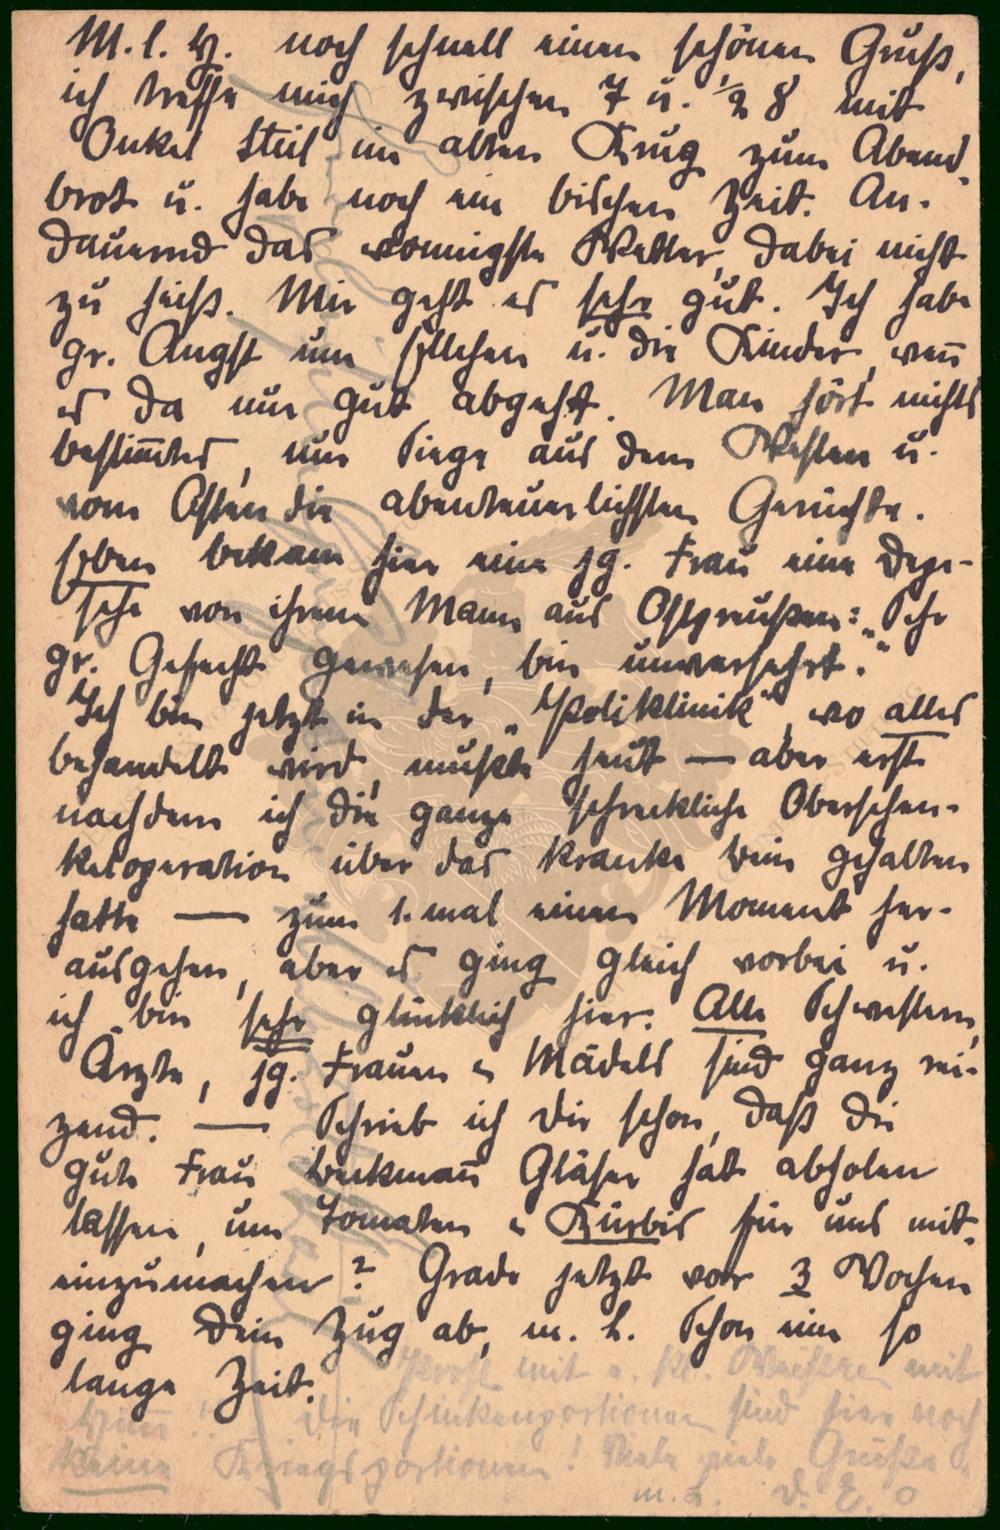 M. l. H. noch schnell einen schönen Gruß,
ich treffe mich zwischen 7 u. ½ 8 mit
Onkel Steil im alten Krug zum Abend-
brot u. habe noch ein bischen Zeit. An-
dauernd das wonnigste Wetter, dabei nicht
zu heiß. Mir geht es sehr gut. Ich habe
gr. Angst um Ellchen u. die Kinder, wen̄
es da nur gut abgeht. Man hört nichts
bestim̄tes, nur Siege aus dem Westen u.
vom Osten die abenteuerlichsten Gerüchte.
Eben bekam hier eine jg. Frau eine Depe-
sche von ihrem Mann aus Ostpreußen: „Sehr
gr. Gefecht gewesen, bin unversehrt."
Ich bin jetzt in der „Poliklinik", wo alles
behandelt wird, mußte heut — aber erst
nachdem ich die ganze schreckliche Oberschen-
keloperation über das kranke Bein gehalten
hatte — zum 1. mal einen Moment her-
ausgehen, aber es ging gleich vorbei u.
ich bin sehr glücklich hier. Alle Schwestern,
Ärzte, jg. Frauen u Mädels sind ganz rei-
zend. — Schrieb ich Dir schon, daß die
gute Frau Beckman̄ Gläser hat abholen
lassen, um Tomaten u Kürbis für uns mit-
einzumachen? Grade jetzt vor 3 Wochen
ging Dein Zug ab, m. L. Schon eine so
lange Zeit.
mit
Die Schinkenportionen sind hier noch
keine Kriegsportionen! Viele viele Grüße
m. L. D. E.